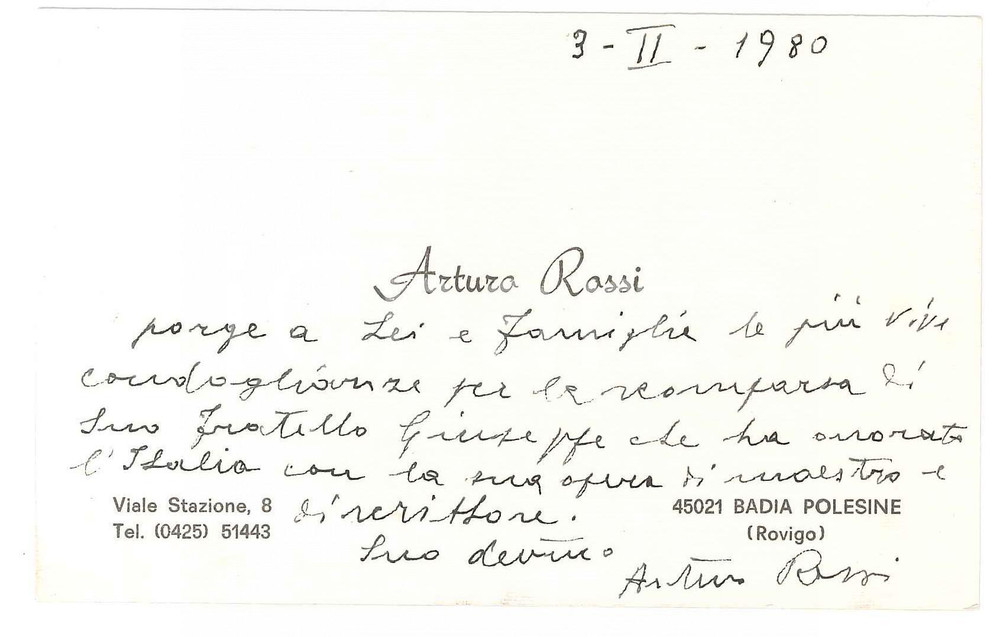 3 - II - 1980
Arturo Rossi
porge a Lei e Famiglia le più vive
condoglianze per la scomparsa di
Suo fratello Giuseppe che ha onorato
l'Italia con la sua opera di maestro e
di scrittore.
Viale Stazione, 8
Tel. (0425) 51443
45021 BADIA POLESINE
(Rovigo)
Suo dev.mo
Arturo Rossi